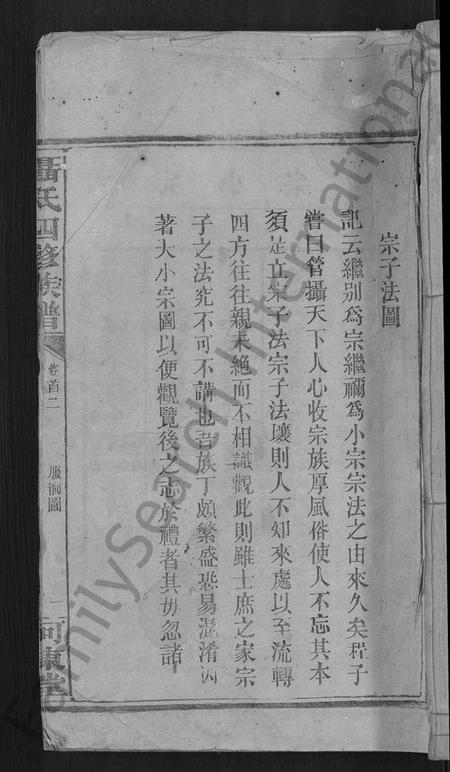 宗子法圖
記云繼别爲宗繼禰爲小宗宗法之由來久矣程子
嘗曰管攝天下人心收宗族厚風俗使人不忘其本
須是立宗子法宗子法壞則人不知來處以至流轉
四方往往親未絶而不相識觀此則雖士庶之家宗
子之法究不可不講也吾族丁頗繁盛恐易混淆因
著大小宗圖以便觀覽後之志於禮者其毋忽諸
聶氏四修族譜
卷首二
服制圖
一
河東堂
FamilySearch International